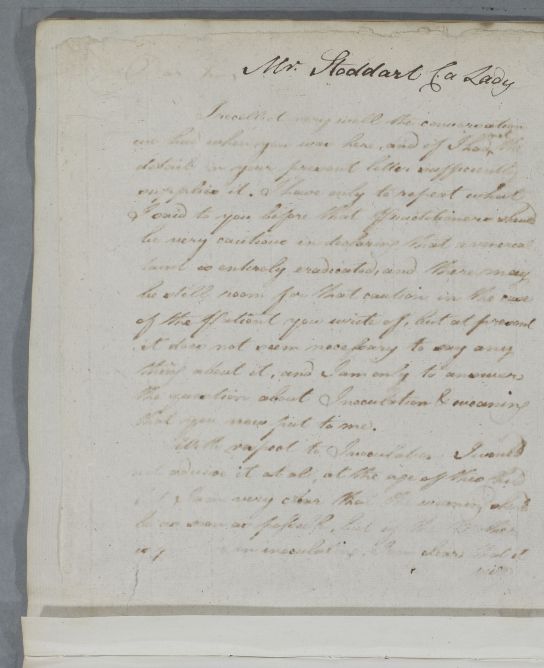 Mr. Stoddart & a Lady
Dear Sir,
I recollect very well the conversation
we had when you was here, and if I had not the
details in your present letter sufficiently
supplies it. I have only to repeat what
I said to you before that Practitioners should
be very cautious in declaring that a venereal
taint is entirely eradicated, and there may
be still room for that caution in the case
of the Patient you write of, but at present
it does not seem necessary to say any
thing about it, and I am only to answer
the question about Inoculation & weaning
that you now put to me.
With respect to Inoculation I would
not advise it at all, at the age of the child
I am very clear that the
be as soon as possible
in inoculating. I am clear that it
will